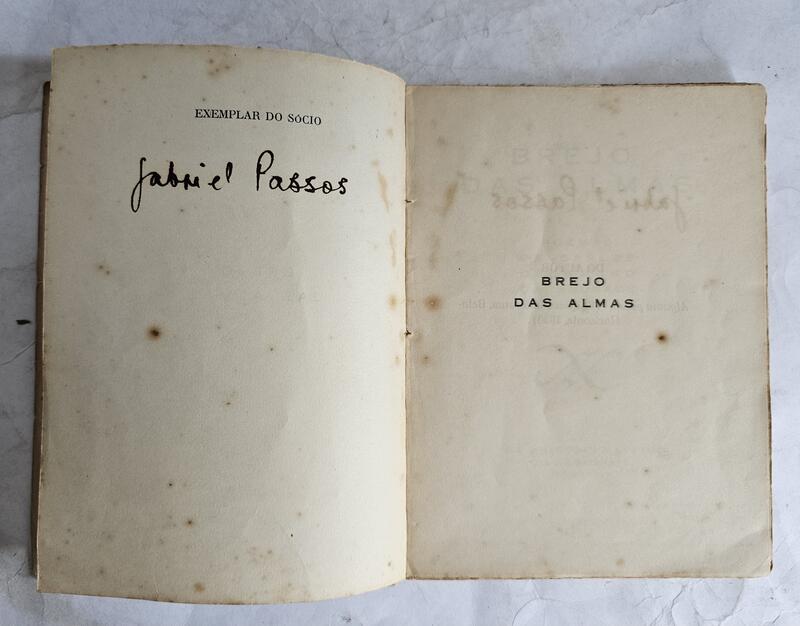 EXEMPLAR DO SÓCIO
Gabriel Passos
BREJO
DAS ALMAS